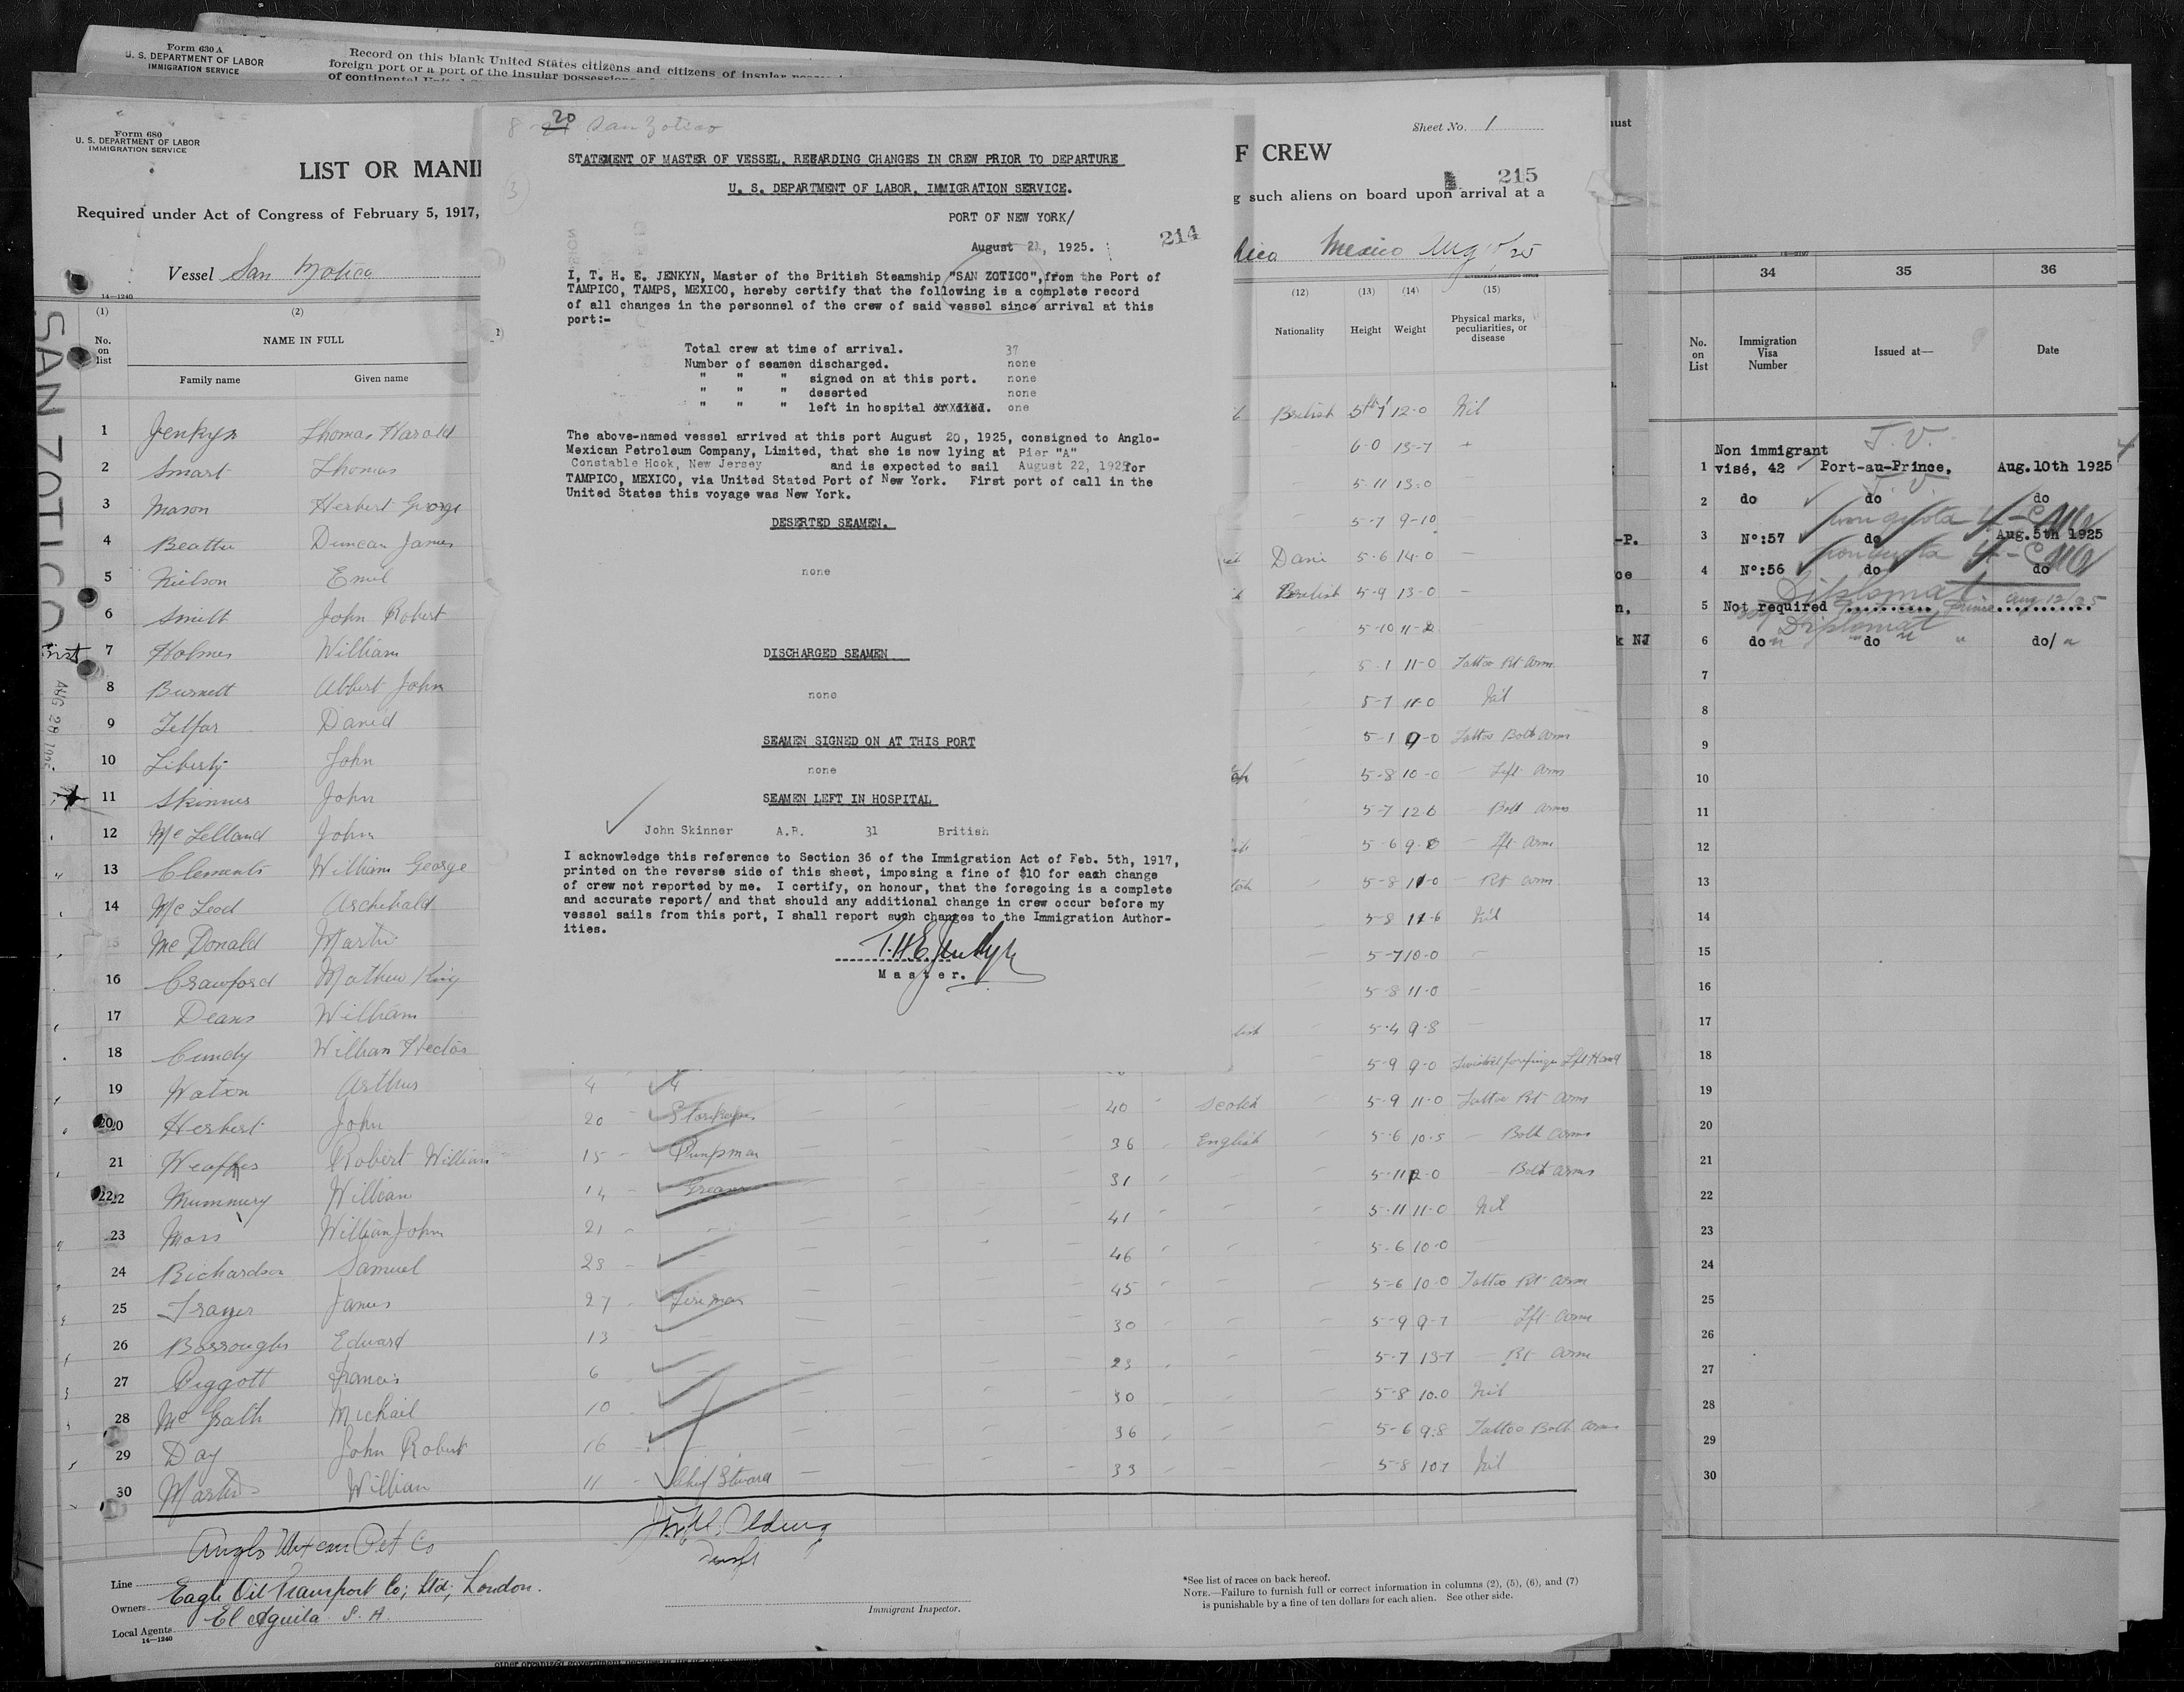 Form 630 A
U. S. DEPARTMENT OF LABOR
IMMIGRATION SERVICE
Record on this blank United States citizens and citizens of insular
foreign port or a port of the insular
of continental
Form 680
U. S. DEPARTMENT OF LABOR
IMMIGRATION SERVICE
LIST OR MANI
Required under Act of Congress of February 5, 1917,
Vessel San Zotico
14—1240
(1) (2)
No. on list
NAME IN FULL
Family name Given name
1 Jenkyn Thomas Harold
2 Smart Thomas
3 Mason Herbert George
4 Beattie Duncan James
5 Nielson Emil
6 Smith John Robert
7 Holmes William
8 Burnett Albert John
9 Telfar David
10 Liberty John
11 Skinner John
12 McLelland John
13 Clements William George
14 McLeod Archibald
15 McDonald Martin
16 Crawford Mathew King
17 Deans William
18 Cundy William Hector
19 Watson Arthur 4
20 Herbert John 20 Storekeeper 40 Scotch
21 Robert William 15 Pumpman 36 English
22 Mummery William 14 Greaser 31
23 Moss William John 21 41
24 Richardson Samuel 23 46
25 Trayer James 27 Fireman 45
26 Burroughs Edward 13 30
27 Piggott Francis 6 23
28 McGrath Michail 10 30
29 Day John Robert 16 36
30 Martin William 11 Chief Steward 33
Anglo Mexican Pet Co
Line
Owners Eagle Oil Transport Co; Ltd; London.
Local Agents El Aguila S. A
14—1240
Immigrant Inspector.
SAN ZOTICO
AUG 20 1925
8 20 San Zotico
3
STATEMENT OF MASTER OF VESSEL, REGARDING CHANGES IN CREW PRIOR TO DEPARTURE
U. S. DEPARTMENT OF LABOR, IMMIGRATION SERVICE.
PORT OF NEW YORK/
August 21, 1925.
214
I, T. H. E. JENKYN, Master of the British Steamship "SAN ZOTICO",from the Port of
TAMPICO, TAMPS, MEXICO, hereby certify that the following is a complete record
of all changes in the personnel of the crew of said vessel since arrival at this
port:-
Total crew at time of arrival. 37
Number of seamen discharged. none
" " " signed on at this port. none
" " " deserted none
" " " left in hospital or died. one
The above-named vessel arrived at this port August 20, 1925, consigned to Anglo-
Mexican Petroleum Company, Limited, that she is now lying at Pier "A"
Constable Hook, New Jersey and is expected to sail August 22, 1925for
TAMPICO, MEXICO, via United Stated Port of New York. First port of call in the
United States this voyage was New York.
DESERTED SEAMEN.
none
DISCHARGED SEAMEN
none
SEAMEN SIGNED ON AT THIS PORT
none
SEAMEN LEFT IN HOSPITAL
John Skinner A.B. 31 British
I acknowledge this reference to Section 36 of the Immigration Act of Feb. 5th, 1917,
printed on the reverse side of this sheet, imposing a fine of $10 for each change
of crew not reported by me. I certify, on honour, that the foregoing is a complete
and accurate report/ and that should any additional change in crew occur before my
vessel sails from this port, I shall report such changes to the Immigration Author-
ities.
T.H.E.Jenkyn
Master.
Sheet No. 1
F CREW
215
g such aliens on board upon arrival at a
Mexico Aug
(12) (13) (14) (15)
Nationality Height Weight Physical marks, peculiarities, or disease
British 12-0 Nil
6-0 13-7
5-11 13-0
5-7 9-10
Dane 5-6 14-0
British 5-9 13-0
5-10
5-1 11-0 Tattoo Rt Arm
5-7 11-0 Nil
5-1 9-0 Tattoo Both Arms
5-8 10-0 Left Arm
5-7 12-6 Both Arms
5-6 Lft Arm
5-8 11-0 Rt Arm
5-8 11-6 Nil
5-7 10-0
5-8 11-0
5-4 9-8
5-9 9-0 forefinger Lft Hand
5-9 11-0 Tattoo Rt Arm
5-6 10-5 Both Arms
5-11 12-0 Both Arms
5-11 11-0 Nil
5-6 10-0
5-6 10-0 Tattoo Rt Arm
5-9 9-7 Lft Arm
5-7 13-7 Rt Arm
5-8 10-0 Nil
5-6 9-8 Tattoo Both Arms
5-8 10-7 Nil
*See list of races on back hereof.
NOTE.—Failure to furnish full or correct information in columns (2), (5), (6), and (7)
is punishable by a fine of ten dollars for each alien. See other side.
34 35 36
No. on List
Immigration Visa Number
Issued at—
Date
T.V.
1 Non immigrant visé, 42 Port-au-Prince, Aug.10th 1925
T.V.
2 do do do
3 N°:57 do Aug.5th 1925
4 N°:56 do do
Diplomat
5 Not required Aug 12/25
Diplomat
6 do do do/
7
8
9
10
11
12
13
14
15
16
17
18
19
20
21
22
23
24
25
26
27
28
29
30